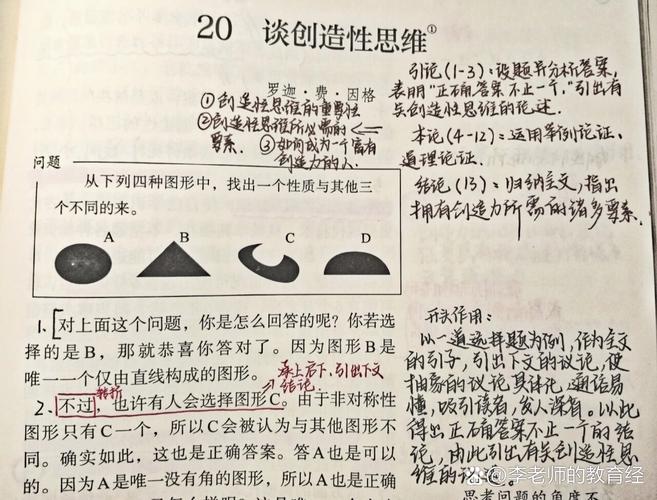 20 谈创造性思维①
罗迦·费·因格
①创造性思维的重要性
②创造性思维所必需的
要素.
③如何成为一个富有
创造力的人.
引论(1-3):设题并分析答案,
表明"正确答案不止一个,"引出有
关创造性思维的论述.
本论(4-12):运用举例论证、
道理论证.
结论(13):归纳全文,指出
拥有创造力所需的诸多要素.
问题
从下列四种图形中,找出一个性质与其他三
个不同的来。
A B C D
1.对上面这个问题,你是怎么回答的呢?你若选
择的是B,那就恭喜你答对了。因为图形B是
唯一一个仅由直线构成的图形。
承上启下,引出下文
结论.
转折
2、不过,也许有人会选择图形C。由于非对称性
图形只有C一个,所以C会被认为与其他图形不
同。确实如此,这也是正确答案。答A也是可以
的。因为A是唯一没有角的图形,所以A也是正确
开头作用:
以一道选择题为例,作为全文
的引子,引出下文的议论,使
抽象的议论具体化,通俗易
懂,吸引读者,发人深省。以此
得出正确答案不止一个的结
论,由此引出有关创造性思
维的议论
思考问题的角度不
@李老师的教育经